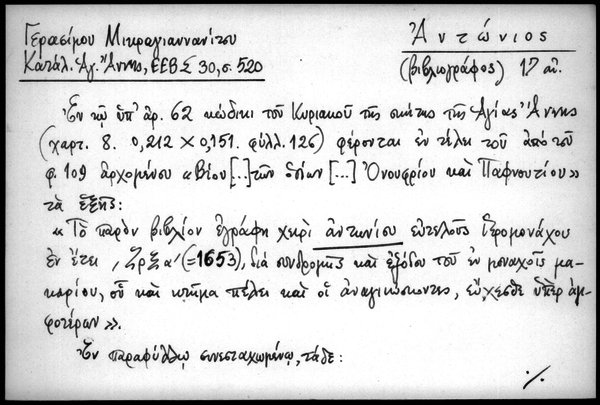 Γερασίμου Μικραγιαννανίτου
Κατάλ. Ἁγ. Ἄννης, ΕΕΒΣ 30, σ. 520
Ἀντώνιος
(βιβλιογράφος) 17 αἰ.
Ἐν τῷ ὑπ' ἀρ. 62 κώδικι τοῦ Κυριακοῦ τῆς σκήτης τῆς Ἁγίας Ἄννης
(χαρτ. 8. 0,212 × 0,151. φύλλ. 126) φέρονται ἐν τέλει τοῦ ἀπὸ τοῦ
φ. 109 ἀρχομένου «Βίου [...] τῶν ὁσίων [...] Ὀνουφρίου καὶ Παφνουτίου»
τὰ ἑξῆς:
«Τὸ παρὸν βιβλίον ἐγράφη χειρὶ ἀντωνίου εὐτελοῦς ἱερομονάχου
ἐν ἔτει ͵ζρξα' (=1653), διὰ συνδρομῆς καὶ ἐξόδου τοῦ ἐν μοναχοῖς μα-
καρίου, οὗ καὶ κτῆμα πέλει καὶ οἱ ἀναγινώσκοντες, εὔχεσθε ὑπὲρ ἀμ-
φοτέρων».
Ἐν παραφύλλῳ συνεσταχωμένῳ, τάδε:
·/.